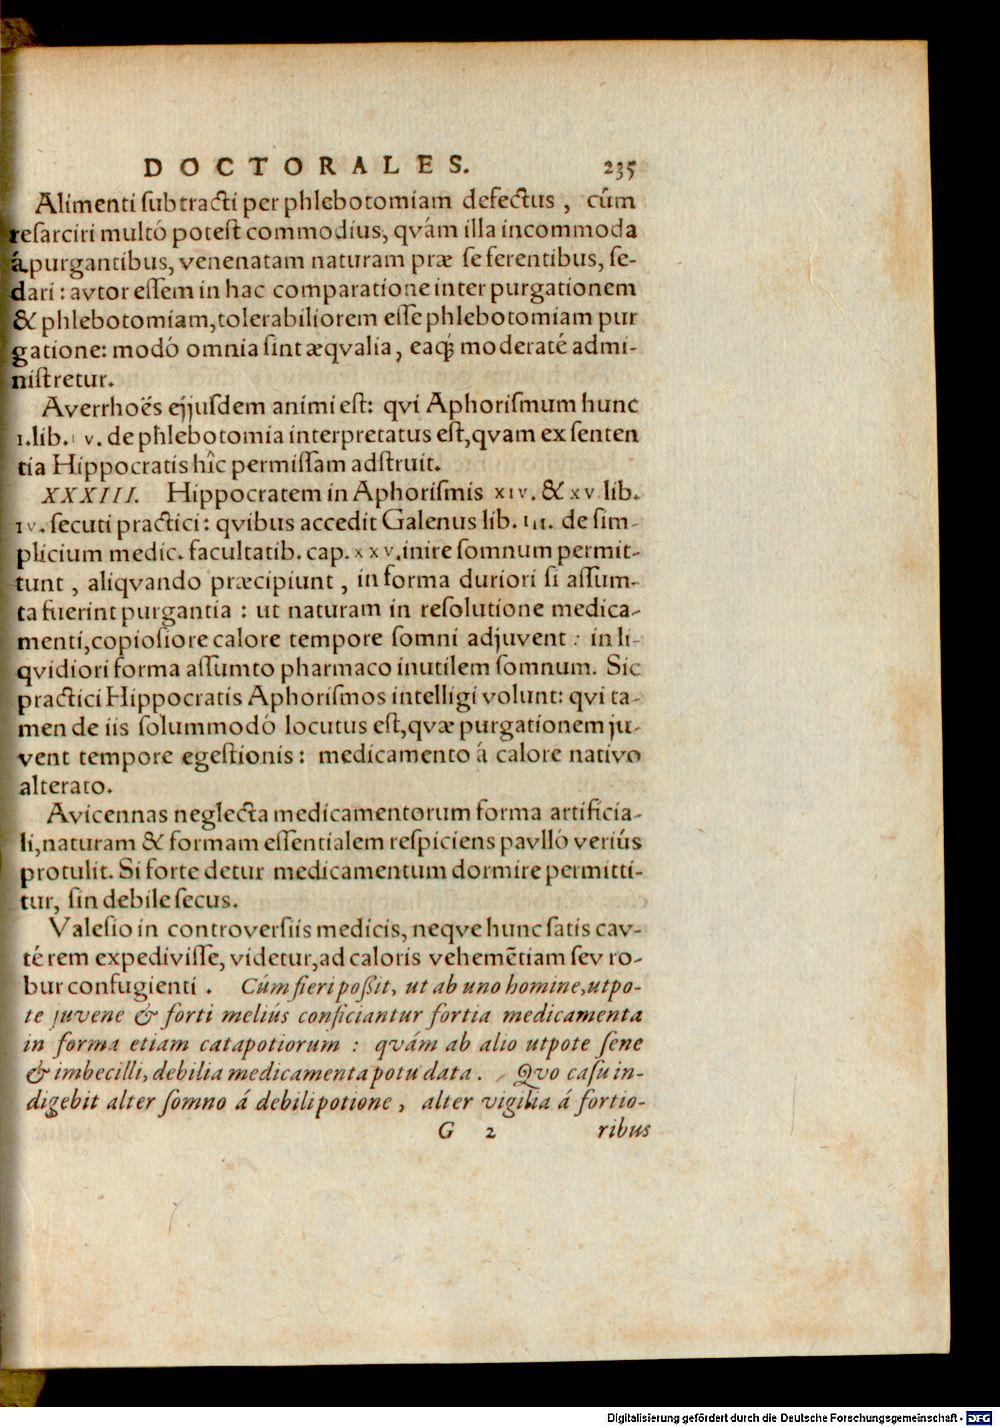 DOCTORALES. 235
Alimenti ſubtracti per phlebotomiam defectus, cúm
reſarciri multó poteſt commodius, qvám illa incommoda
á purgantibus, venenatam naturam præ ſe ferentibus, ſe-
dari: avtor eſſem in hac comparatione inter purgationem
& phlebotomiam, tolerabiliorem eſſe phlebotomiam pur
gatione: modó omnia ſint æqvalia, eaq; moderaté admi-
niſtretur.
Averrhoës ejjuſdem animi eſt: qvi Aphoriſmum hunc
1. lib. v. de phlebotomia interpretatus eſt, qvam ex ſenten
tia Hippocratis hîc permiſſam adſtruit.
XXXIII. Hippocratem in Aphoriſmis XIV. & XV lib.
IV. ſecuti practici: qvibus accedit Galenus lib. III. de ſim-
plicium medic. facultatib. cap. XXV. inire ſomnum permit-
tunt, aliqvando præcipiunt, in forma duriori ſi aſſum-
ta fuerint purgantia: ut naturam in reſolutione medica-
menti, copioſiore calore tempore ſomni adjuvent: in li-
qvidiori forma aſſumto pharmaco inutilem ſomnum. Sic
practici Hippocratis Aphoriſmos intelligi volunt: qvi ta-
men de iis ſolummodó locutus eſt, qvæ purgationem ju-
vent tempore egeſtionis: medicamento á calore nativo
alterato.
Avicennas neglecta medicamentorum forma artificia-
li, naturam & formam eſſentialem reſpiciens pavlló veriús
protulit. Si forte detur medicamentum dormire permitti-
tur, ſin debile ſecus.
Valeſio in controverſiis medicis, neqve hunc ſatis cav-
té rem expediviſſe, videtur, ad caloris vehemẽtiam ſev ro-
bur confugienti. Cúm fieri poßit, ut ab uno homine, utpo-
te juvene & forti meliús conficiantur fortia medicamenta
in forma etiam catapotiorum: quám ab alio utpote ſene
& imbecilli, debilia medicamenta potu data. Quo caſu in-
digebit alter ſomno á debili potione, alter vigilia á fortio-
G 2 ribus
Digitalisierung gefördert durch die Deutsche Forschungsgemeinschaft - DFG